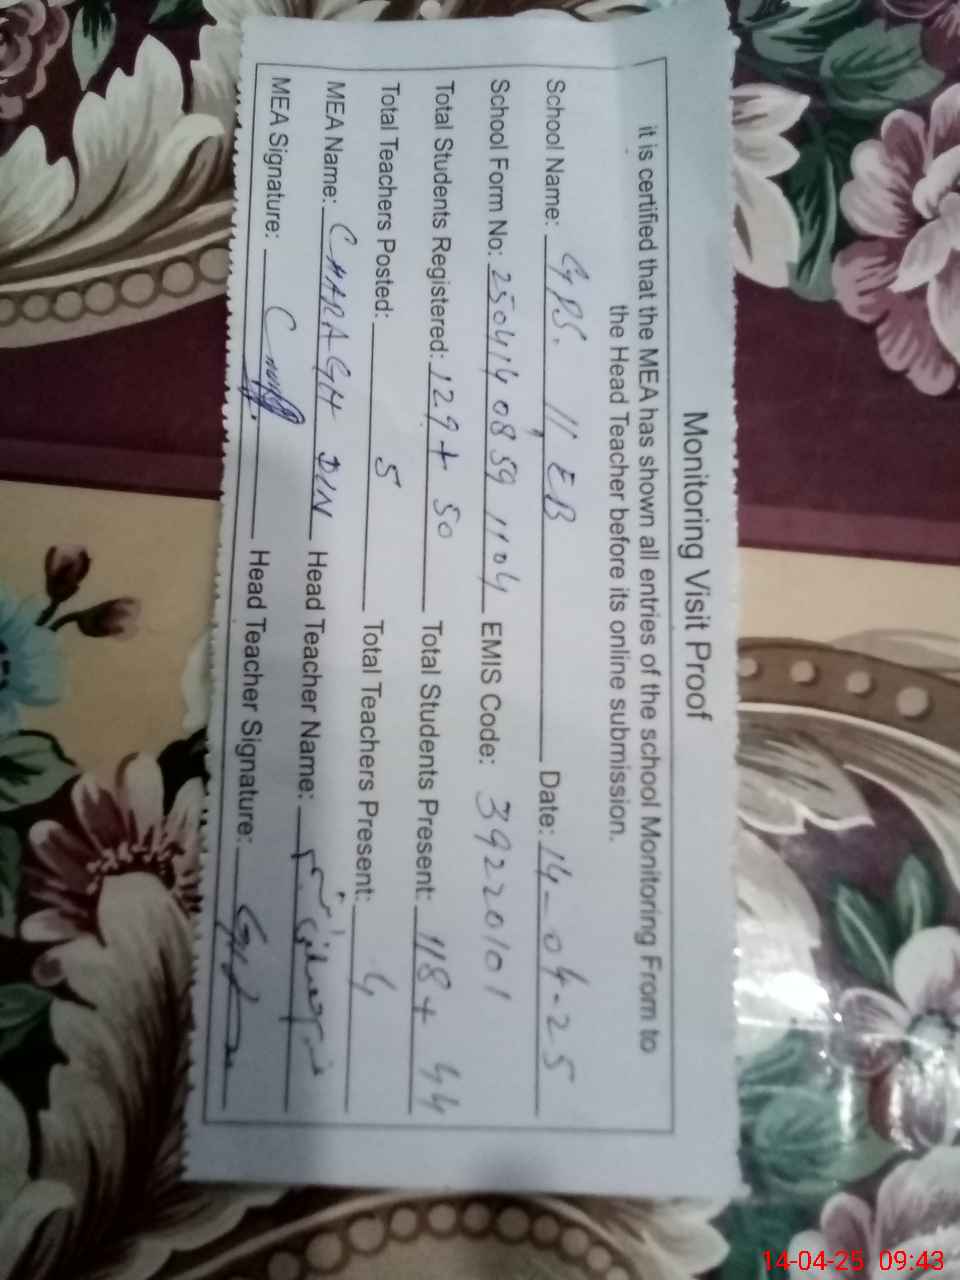 Monitoring Visit Proof
it is certified that the MEA has shown all entries of the school Monitoring From to
the Head Teacher before its online submission.
School Name: GPS. 11 EB Date: 14-04-25
School Form No: 25041408591104 EMIS Code: 39220101
Total Students Registered: 129+ 50 Total Students Present: 118+ 44
Total Teachers Posted: 5 Total Teachers Present: 4
MEA Name: CHARAGH DIN Head Teacher Name:
MEA Signature: Head Teacher Signature:
14-04-25 09:43